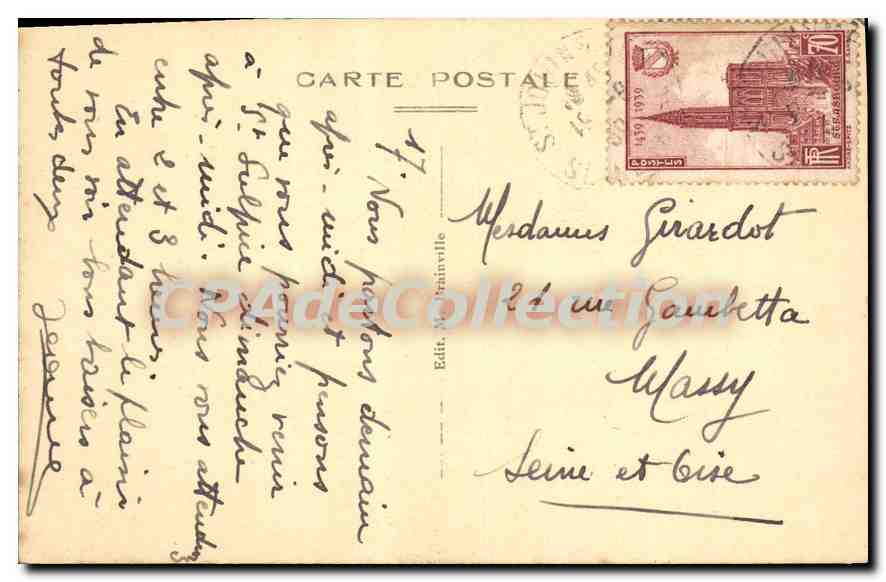 CARTE POSTALE
17. Nous partons demain
après-midi et pensons
que vous pourriez venir
à St Sulpice dimanche
après-midi. Nous vous attendons
entre 2 et 3 heures.
En attendant le plaisir
de vous voir bons baisers à
toutes deux
Edit. M. Prainville
1439 1939
70
POSTES
STRASBOURG
RF
Mesdames Girardot
21 rue Gambetta
Massy
Seine et Oise
CPAdeCollection